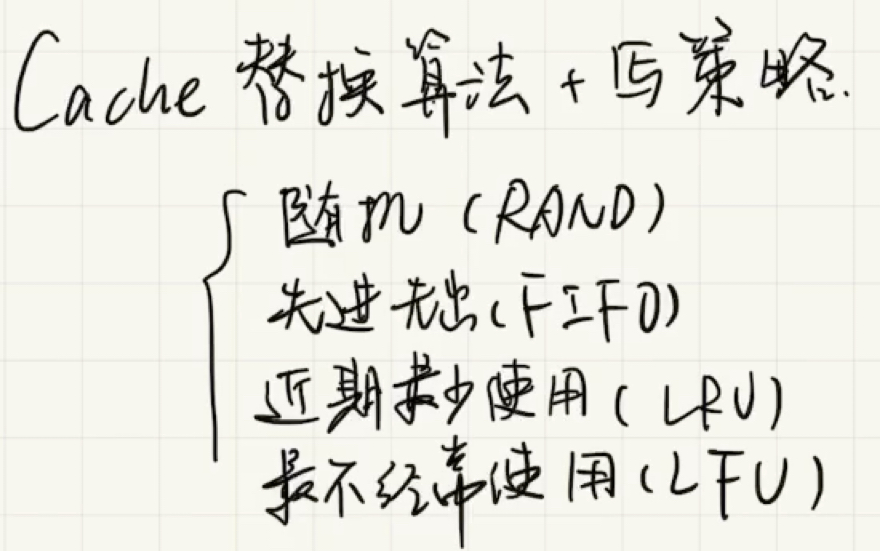 Cache 替换算法 + 写策略.
随机 (RAND)
先进先出 (FIFO)
近期最少使用 (LRU)
最不经常使用 (LFU)